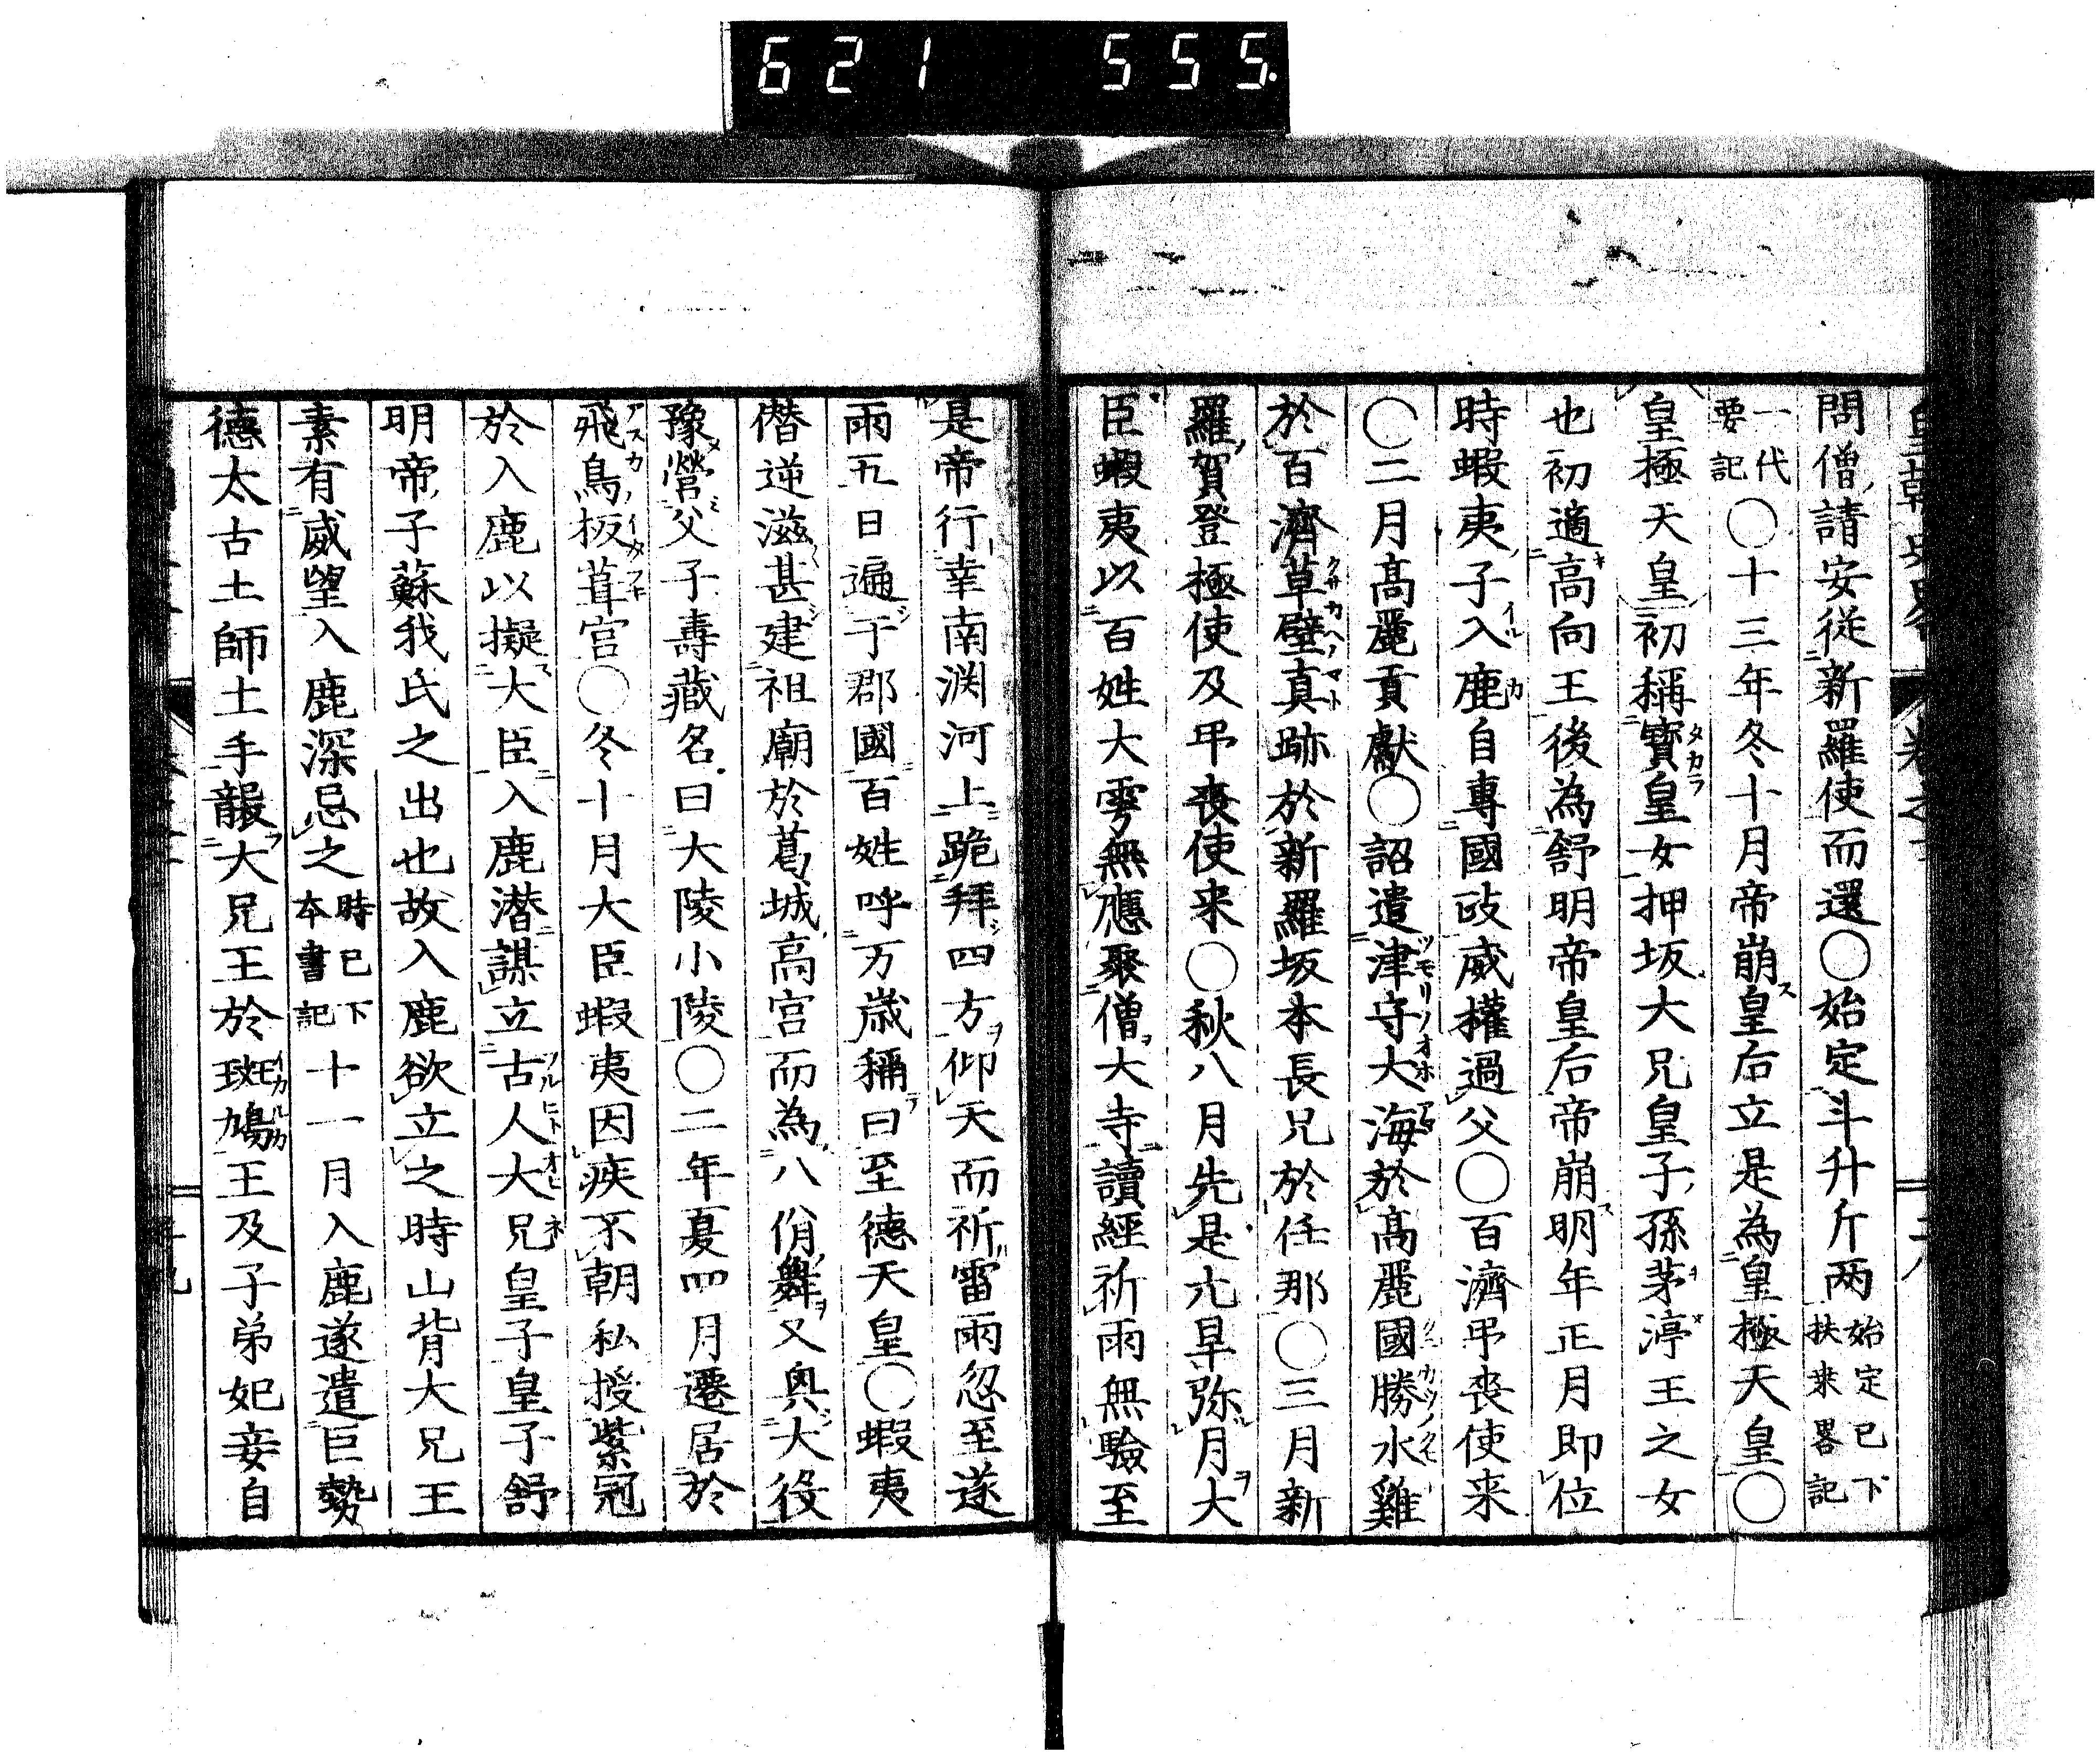 621 555.
問僧請安從新羅使而還〇始定斗升斤両始定已下扶来畧記
一代要記〇十三年冬十月帝崩皇后立是為皇極天皇〇
皇極天皇初稱寶皇女押坂大兄皇子孫茅渟王之女
也初適高向王後為舒明帝皇后帝崩明年正月即位
時蝦夷子入鹿自專國政威權過父〇百濟弔喪使来
〇二月髙麗貢獻〇詔遣津守大海於髙麗國勝水雞
於百濟草壁真跡於新羅坂本長兄於任那〇三月新
羅賀登極使及弔喪使来〇秋八月先是亢旱弥月大
臣蝦夷以百姓大雩無應聚僧大寺讀經祈雨無驗至
是帝行幸南渕河上跪拜四方仰天而祈雷雨忽至遂
雨五日遍于郡國百姓呼万歳稱曰至德天皇〇蝦夷
僭逆滋甚建祖廟於葛城高宮而為八佾舞又興大役
豫營父子壽藏名曰大陵小陵〇二年夏四月遷居於
飛鳥板葺宮〇冬十月大臣蝦夷因疾不朝私授紫冠
於入鹿以擬大臣入鹿潜謀立古人大兄皇子皇子舒
明帝子蘇我氏之出也故入鹿欲立之時山背大兄王
素有威望入鹿深忌之時已下本書記十一月入鹿遂遣巨勢
德太古土師土手襲大兄王於斑鳩王及子弟妃妾自